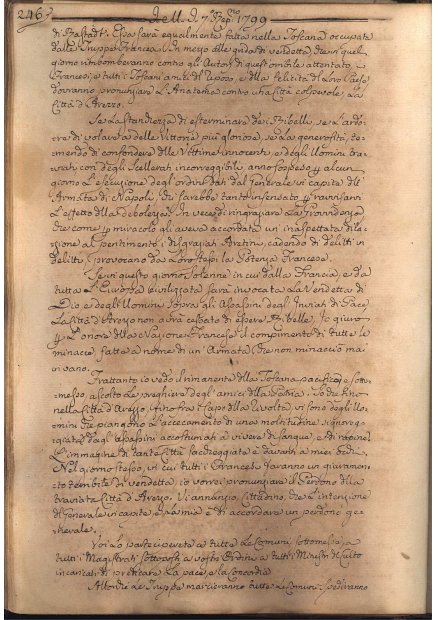 246
1799
di Rastadt. Essa sarà egualmente fatta nella Toscana occupata
dalle Truppe Francesi. In mezzo alle grida di vendetta, che in quel
giorno rimbomberanno contro gli Autori di quest'orribile attentato, i
Francesi e tutti i Toscani amici del riposo, e della felicità del Loro Paese
dovranno pronunziare L'Anatema contro una Città colpevole, La
Città d'Arezzo.
Se La stanchezza di esterminare dei Ribelli, se L'ardo-
re di volare a delle Vittorie più gloriose, se La generosità, te-
mendo di confondere delle Vittime innocenti, e degli Uomini tra-
viati con degli Scellerati incorreggibili, anno sospeso p alcun
giorno L'esecuzione degli ordini dati dal Generale in capite dell'
Armata di Napoli, chi sarebbe tanto insensato p ravvisarvi
L'effetto della debolezza. In vece di ringraziare La Provvidenza
che come p miracolo gli aveva accordata un inaspettata dila-
zione al pentimento i disgraziati Aretini, cadendo di delitti in
delitti provocano da Loro stessi La Potenza Francese.
Se in questo giorno solenne in cui dalla Francia, e da
tutta L'Europa civilizzata sarà invocata La Vendetta di
Dio e degli Uomini sopra gli Assassini degl'Inviati di Pace
La Città d'Arezzo non avrà cessato di essere Ribelle, Io giuro
p L'onore della Nazione Francese il compimento di tutte le
minacce fatte a nome di un Armata che non minacciò mai
in vano.
Frattanto io vedo il rimanente della Toscana pacifico e sotto-
messo, ascolto Le preghiere degl'amici della Patria. Io
nella Città d'Arezzo, fino fra i capi della rivolta vi sono degli Uo-
mini che piangono L'accecamento di una moltitudine
dagl'assassini accostumati a vivere di sangue, e di rapine.
L'immagine di tante Città saccheggiate è davanti a miei occhi.
Nel giorno stesso, in cui tutti i Francesi faranno un giuramen-
to terribile di vendetta, io vorrei pronunziare il Perdono della
traviata Città d'Arezzo. Vi annunzio, Cittadino, che L'intenzione
del Generale in capite, e la mia è di accordare un perdono ge-
nerale.
Voi Lo parteciperete a tutte Le Comuni sottomesse, a
tutti i Magistrati sottoposti a vostri Ordini, a tutti i Ministri del culto
incaricati di predicare La pace, e La concordia.
Allorché Le Truppe marcieranno tutte Le Comuni spediranno